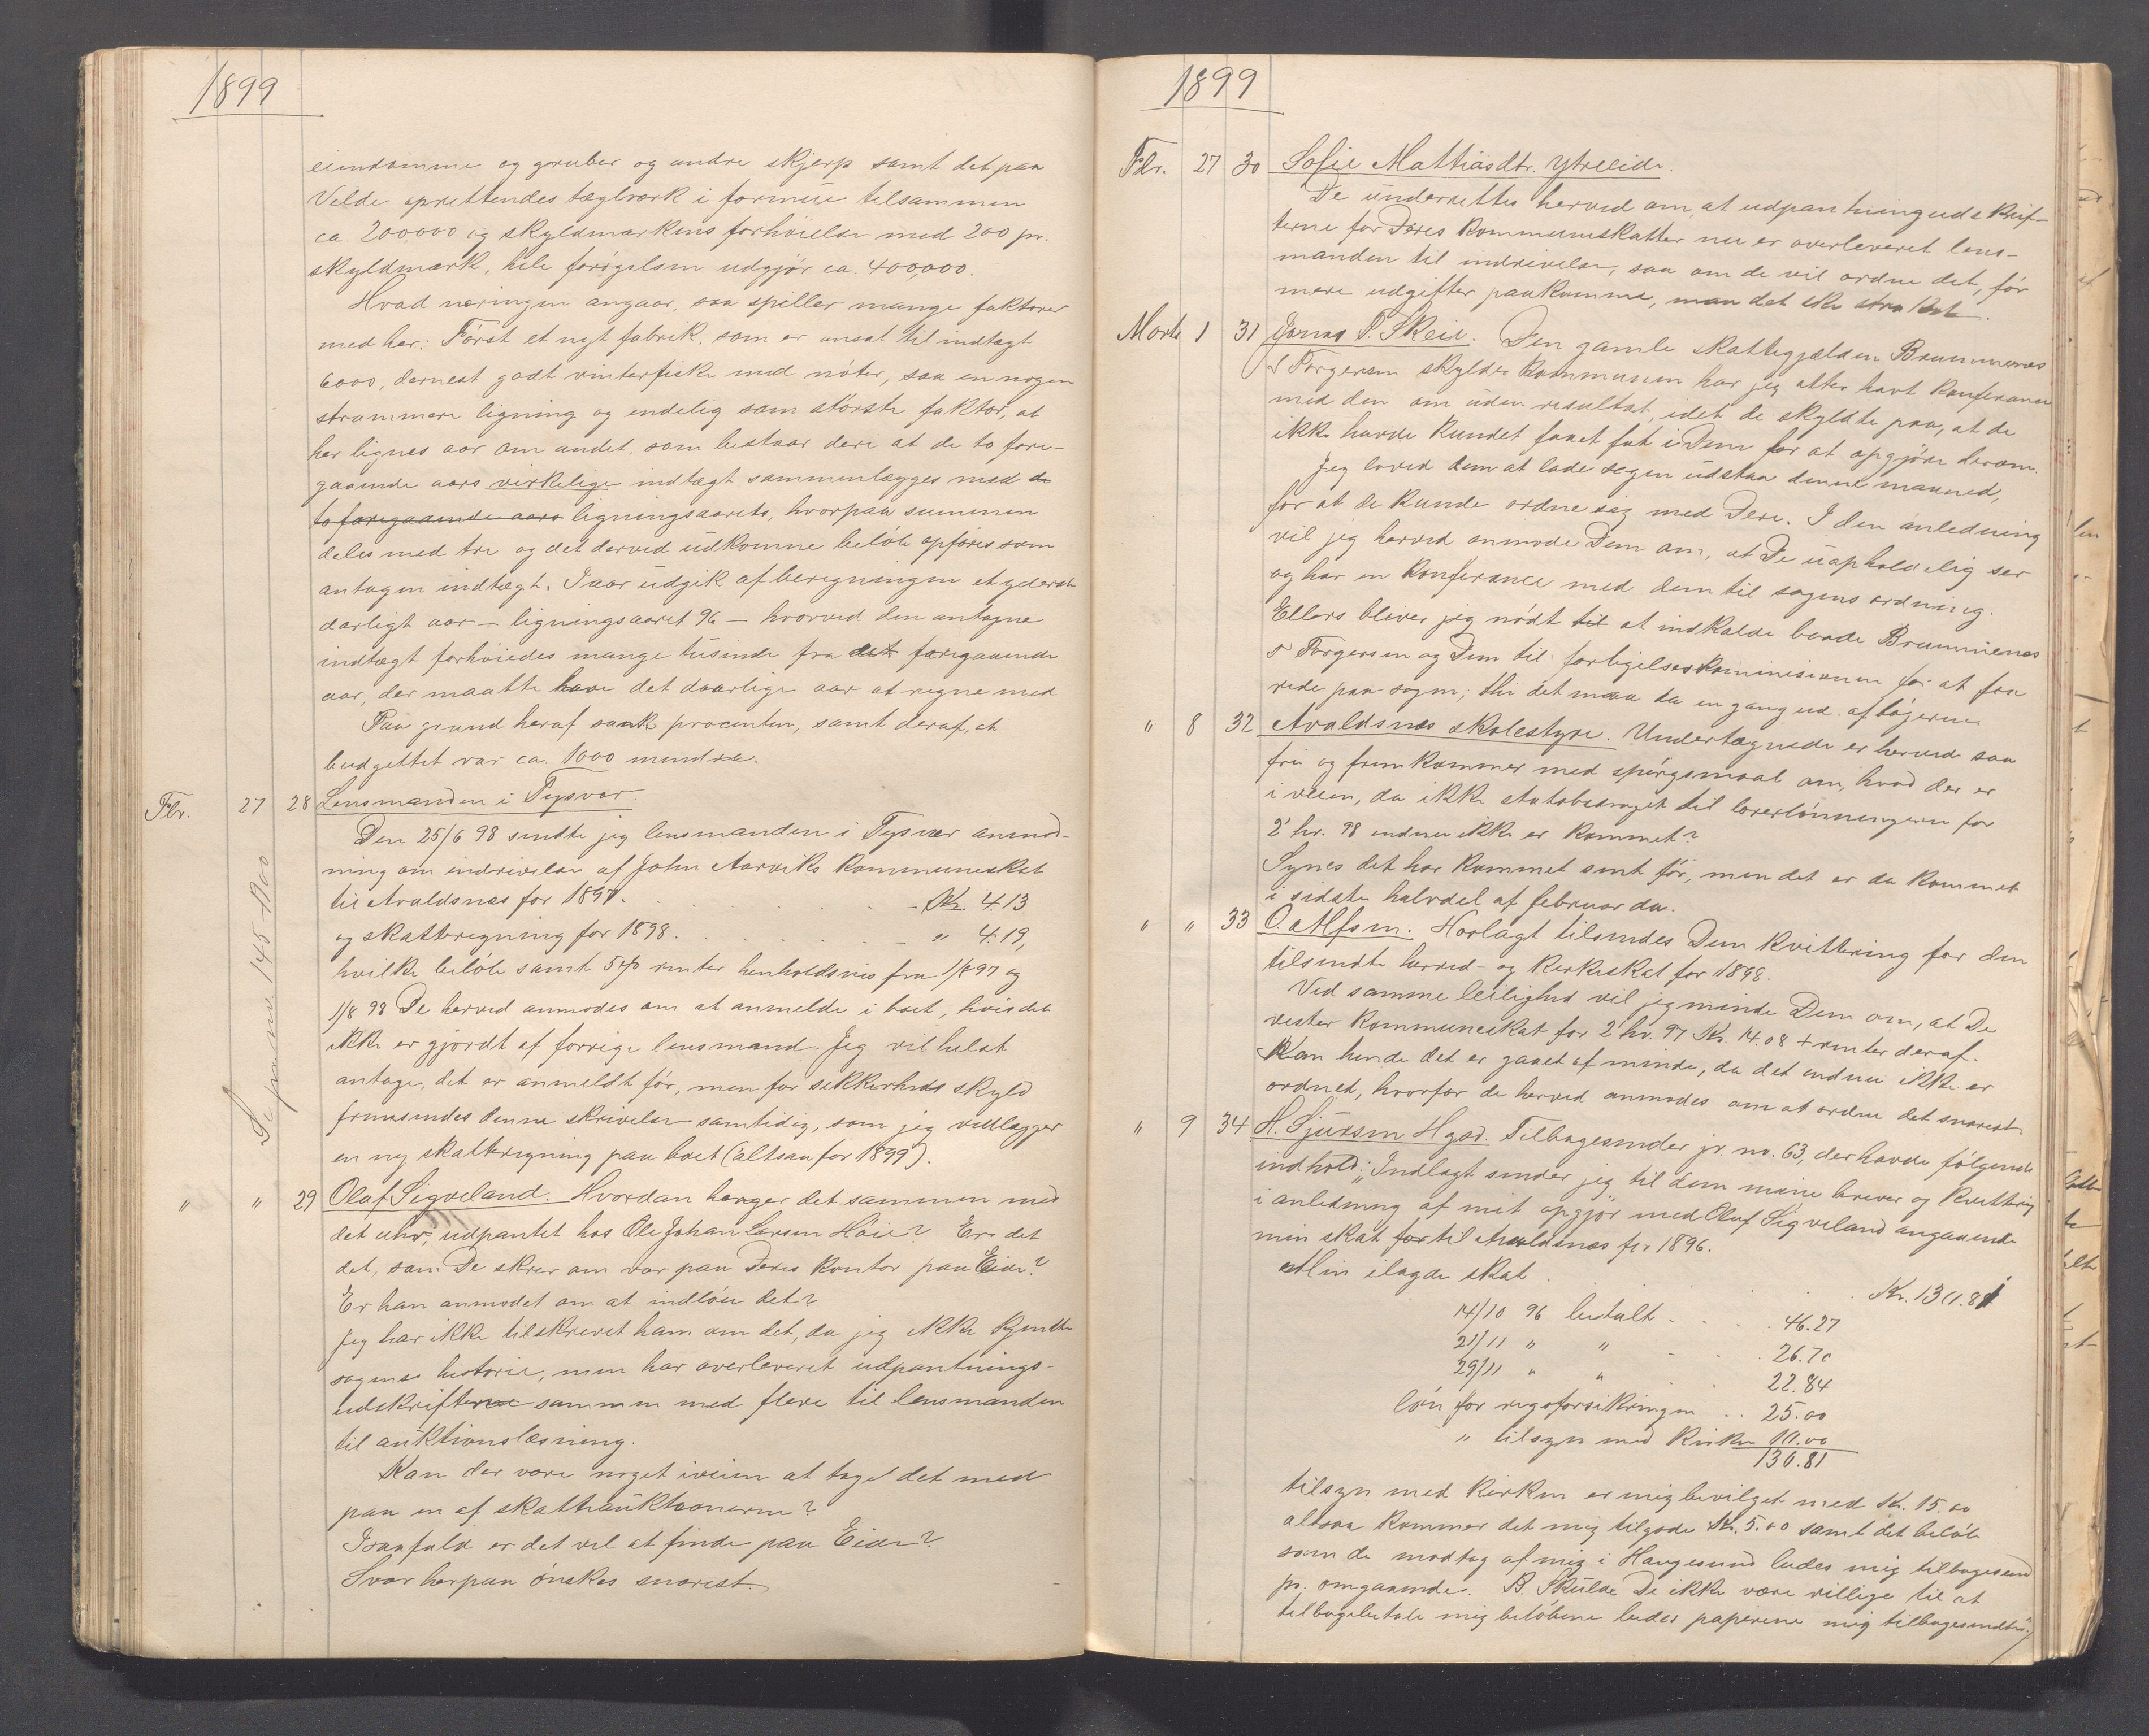 1899
eiendomme og gruber og andre skjerp samt det paa
Velde oprettendes tæglværk i formue tilsammen
ca. 200000 og skyldmarkens forhøielse med 200 pr.
skyldmark, hele forøgelsen udgjør ca. 400,000.
Hvad næringen angaar, saa spiller mange faktorer
med her: Først et nyt fabrik, som er ansat til indtægt
6000, dernest godt vinterfiske med nøter, saa en nogen
strammere ligning og endelig som største faktor, at
her lignes aar om andet, som bestaar deri at de to fore-
gaaende aars virkelige indtægt sammenlægges med de
to foregaaende aars ligningsaarets, hvorpaa summen
deles med tre og det derved udkomne beløb opføres som
antagen indtægt. Iaar udgik af beregningen et yderst
darligt aar - ligningsaaret 96 - hvorved den antagne
indtægt forhøiedes mange tusinde fra det foregaaende
aar, der maatte have det daarlige aar at regne med
Paa grund heraf sank procenten, samt deraf, at
budgettet var ca. 1000 mindre.
Fbr. 27 28 Lensmanden i Tysvær
Den 25/6 98 sendte jeg lensmanden i Tysvær anmod-
ning om indrivelse af John Aarviks kommuneskat
til Avaldsnes for 1897. Kr. 4.13
og skatteregning for 1898. " 4.19,
hvilke beløb samt 5% renter henholdsvis fra 1/8 97 og
1/8 98 De herved anmodes om at anmelde i boet, hvis det
ikke er gjordt af forrige lensmand. Jeg vil helst
antage, det er anmeldt før, men for sikkerheds skyld
fremsendes denne skrivelse samtidig, som jeg vedlægger
en ny skatteregning paa boet (altsaa for 1899).
Se j. no 145 1900
" " 29 Olaf Sigveland. Hvordan hænger det sammen med
det uhr, udpantet hos Ole Johan Larsen Høie? Er det
det, som De skrev om var paa Deres kontor paa Eide?
Er han anmodet om at indløse det?
Jeg har ikke tilskrevet ham om det, da jeg ikke kjendte
sagens historie, men har overleveret udpantnings-
udskrifterne sammen med flere til lensmanden
til auktionslæsning.
Kan der være noget iveien at tage det med
paa en af skatteauktionerne?
Isaafald er det vel at finde paa Eide?
Svar herpaa ønskes snarest.
1899
Fbr. 27 30 Sofie Mattiasdtr. Ytreeide.
De underrettes herved om, at udpantningudskrif-
terne for Deres kommuneskatter nu er overleveret lens-
manden til indrivelse, saa om de vil ordne det, før
mere udgifter paakomme, maa det ske strakst.
Marts 1 31 Jonas P. Skeie. Den gamle skattegjæld Brummenæs
& Torgersen skylder kommunen har jeg atter havt konferance
med dem om uden resultat, idet de skyldte paa, at de
ikke havde kundet faaet fat i Dem for at opgjøre derom.
Jeg loved dem at lade sagen udstaa denne maaned,
for at de kunde ordne sig med Dere. I den anledning
vil jeg herved anmode Dem om, at De uopholdelig ser
og har en konferance med dem til sagens ordning.
Ellers bliver jeg nødt til at indkalde baade Brummenes
& Torgersen og Dem til forligelseskommissionen for at faa
rede paa sagen; thi det maa da en gang ud af bøgerne
" 8 32 Avaldsnes skolestyre. Undertegnede er herved saa
fri og fremkommer med spørgsmaal om, hvad der er
i veien, da ikke statsbidraget til lærerlønningerne for
2' hr. 98 endnu ikke er kommet?
Synes det har kommet sent før, men det er da kommet
i sidste halvdel af februar da.
" " 33 O. Alfsen. Hoslagt tilsendes Dem kvittering for den
tilsendte herred- og kirkeskat for 1898.
Ved samme leilighed vil jeg minde Dem om, at De
rester kommuneskat for 2' hr. 97 Kr. 14.08 + renter deraf.
Kan hende det er gaaet af minde, da det endnu ikke er
ordnet, hvorfor de herved anmodes om at ordne det snarest
" 9 34 H. Sjursen Hgsd. Tilbagesender jr. no. 63, der havde følgende
indhold: "Indlagt sender jeg til dem mine brever og kvittering
i anledning af mit opgjør med Olaf Sigveland angaaende
min skat for til Avaldsnes for 1896.
Min ilagde skat Kr. 130.81
14/10 96 betalt 46.27
21/11 " " 26.70
29/11 " " 22.84
løn for  25.00
" tilsyn med kirken 10.00
130.81
tilsyn med kirken er mig bevilget med Kr. 15.00
altsaa kommer det mig tilgode Kr. 5.00 samt det beløb
som de modtog af mig i Haugesund bedes mig tilbagesend
pr. omgaaende. B. Skulde De ikke være villige til at
tilbagebetale mig beløbene bedes papirene mig tilbagesendte"